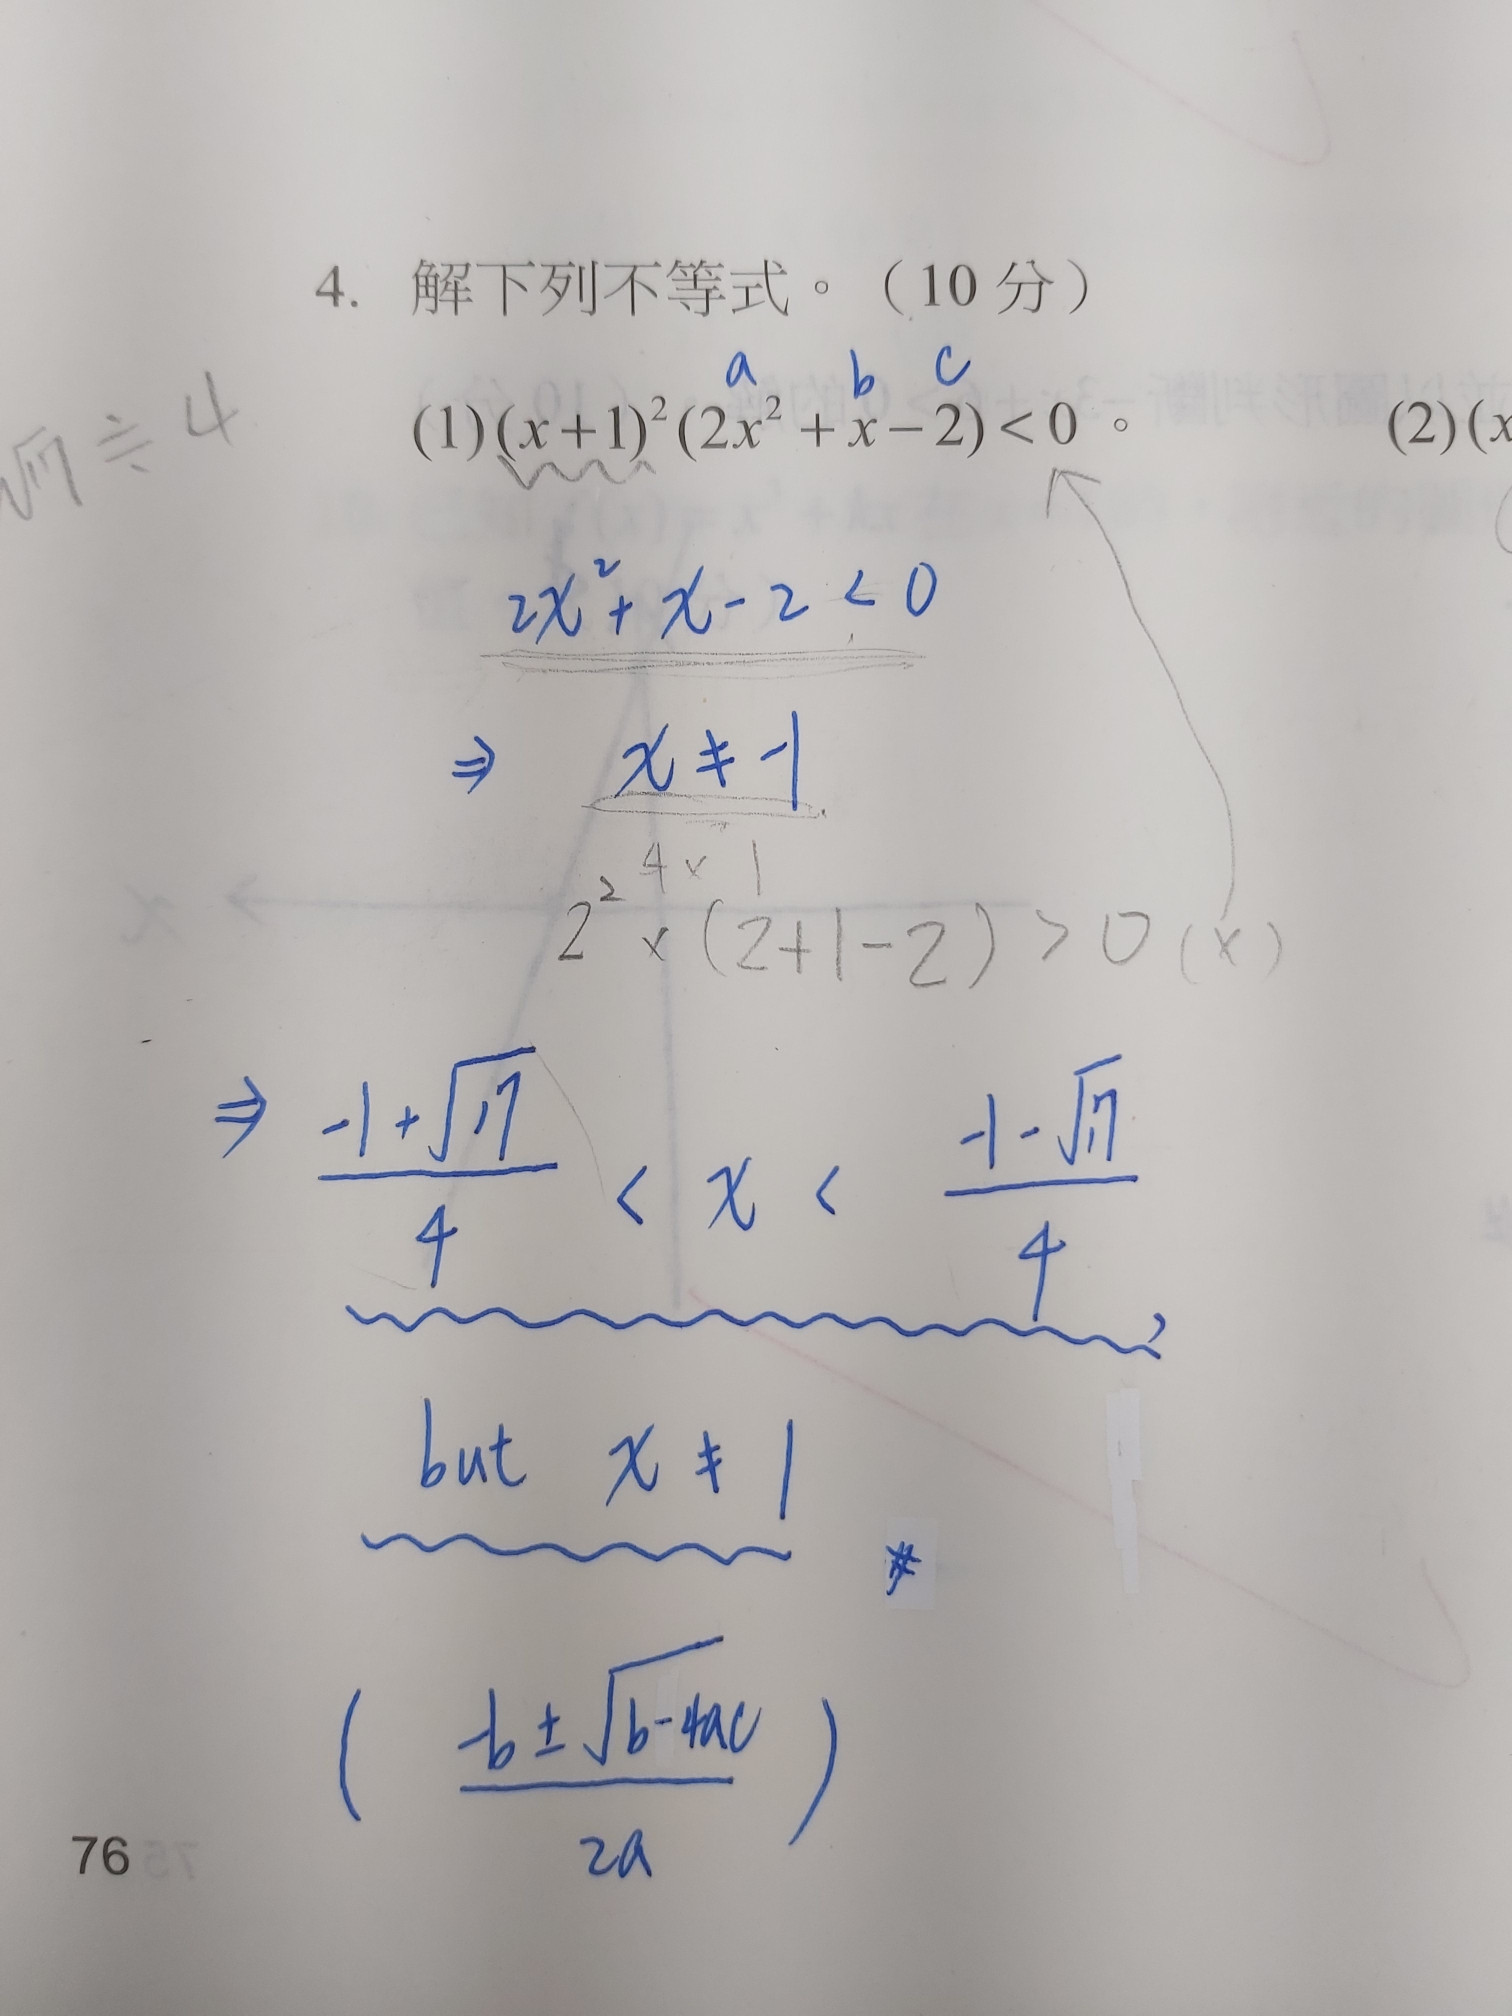 4. 解下列不等式。（10 分）
a b c
(1)(x+1)²(2x²+x−2)<0。
(2)(x
√17≒4
2x²+x-2<0
⇒ x≠-1
4×1
2²×(2+1-2)>0(x)
⇒ -1+√17/4 < x < -1-√17/4,
but x≠1 *
(-b±√b-4ac/2a)
76